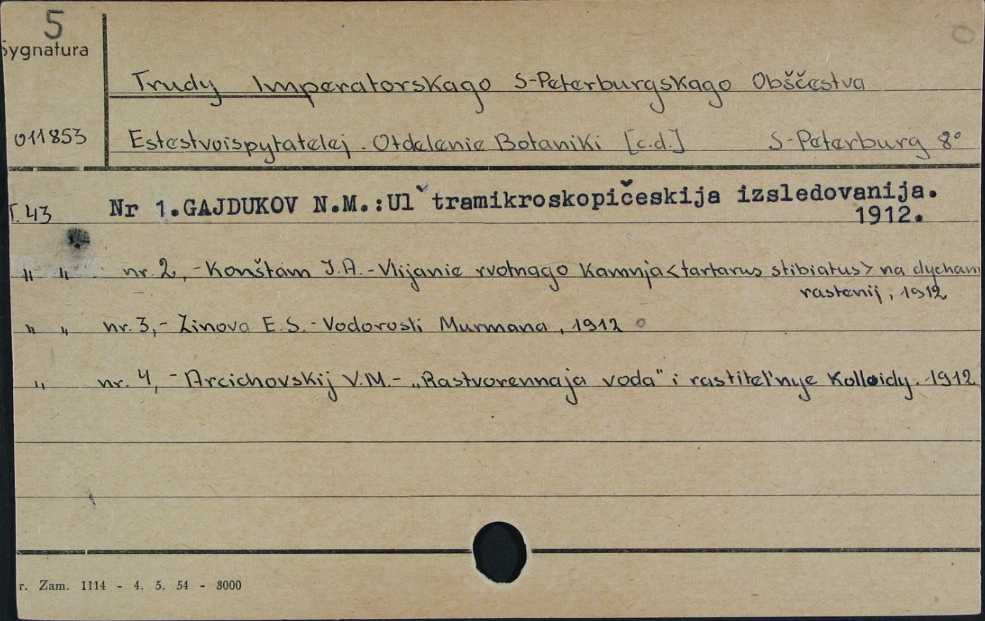 5
Sygnatura
Trudy Imperatorskago S-Peterburgskago Obščestva
011853
Estestvoispytatelej. Otdelenie Botaniki [c.d.] S-Peterburg 8°
T. 43 Nr 1.GAJDUKOV N.M.:Ulˇtramikroskopičeskija izsledovanija.
1912.
" " nr. 2,- Konštam J.A.- Vlijanie rvotnago Kamnja <tartarus stibiatus> na dychan
rastenij, 1912
" " nr. 3,- Zinova E.S.- Vodorosli Murmana, 1912
" nr. 4,- Arcichovskij V.M.- „Rastvorennaja voda" i rastitel'nye Kolloidy. 1912
r. Zam. 1114 - 4. 5. 54 - 8000